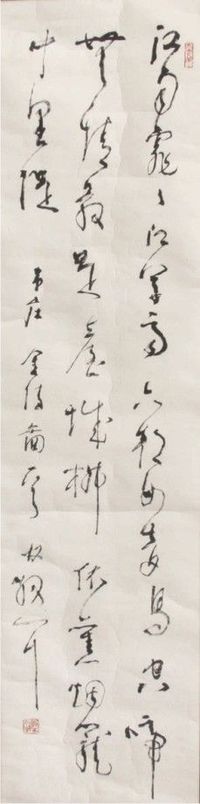 江雨霏〻江草齊六朝如夢鳥空啼
無情最是臺城柳依舊烟籠
十里堤 韋莊金陵圖